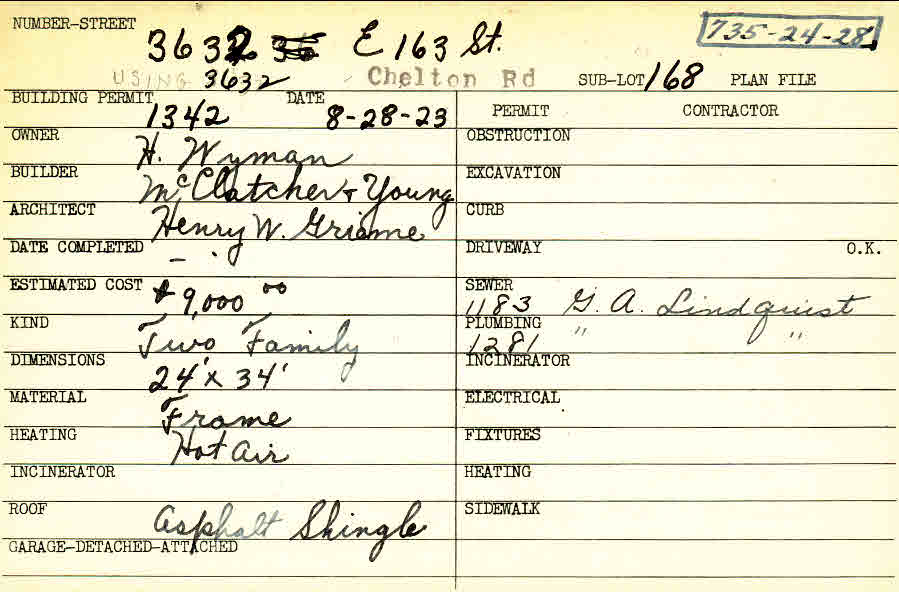 NUMBER-STREET 3632 36 E 163 St. 735-24-28
USING 3632 Chelton Rd SUB-LOT 168 PLAN FILE
BUILDING PERMIT 1342 DATE 8-28-23 PERMIT CONTRACTOR
OWNER H. Wyman OBSTRUCTION
BUILDER McClatcher & Young EXCAVATION
ARCHITECT Henry W. Grieme CURB
DATE COMPLETED — . DRIVEWAY O.K.
ESTIMATED COST $9,000 00 SEWER 1183 G. A. Lindquist
KIND Two Family PLUMBING 1281 " "
DIMENSIONS 24' x 34' INCINERATOR
MATERIAL Frame ELECTRICAL
HEATING Hot Air FIXTURES
INCINERATOR HEATING
ROOF Asphalt Shingle SIDEWALK
GARAGE-DETACHED-ATTACHED